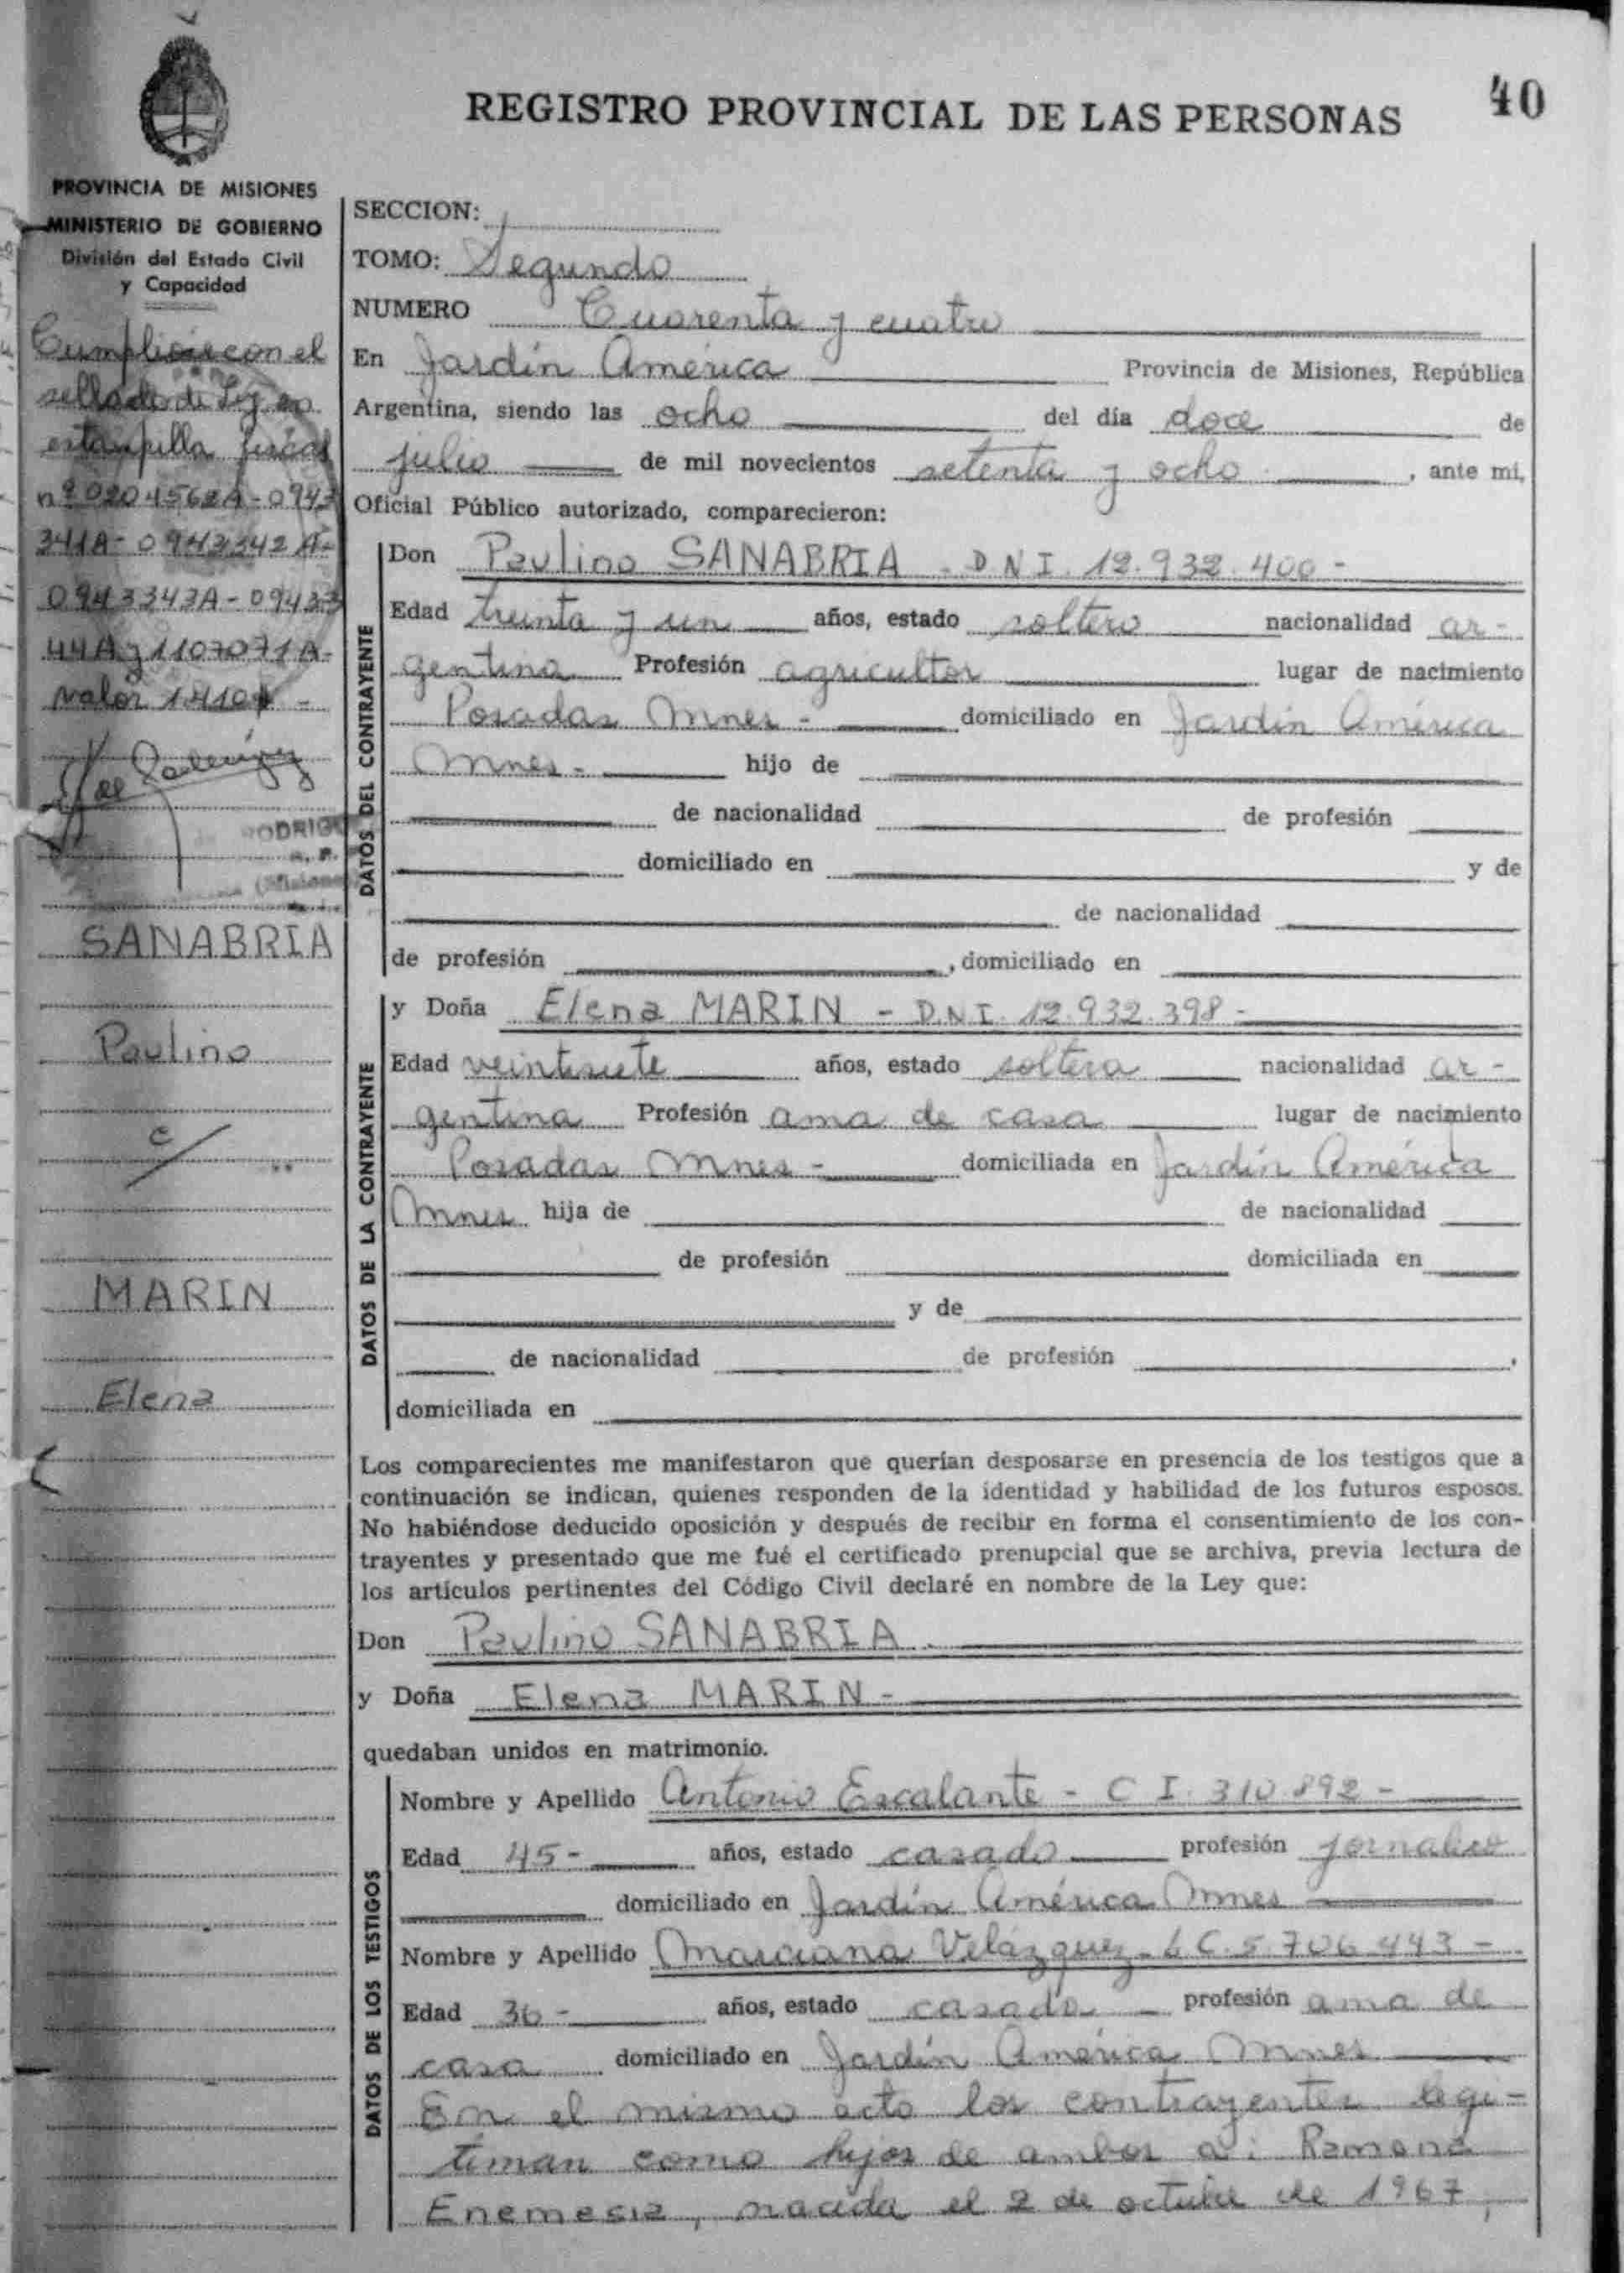 40
REGISTRO PROVINCIAL DE LAS PERSONAS
PROVINCIA DE MISIONES
MINISTERIO DE GOBIERNO
División del Estado Civil
y Capacidad
Cumpliose con el
sellado de Ley en
estampilla fiscal
nº 0204562A - 0943
341A - 0943342A -
0943343A - 09433
44A y 1107071A -
valor 1410$ -
RODRIGU
SANABRIA
Paulino
c/
MARIN
Elena
SECCION:
TOMO: Segundo
NUMERO Cuarenta y cuatro
En Jardín América Provincia de Misiones, República
Argentina, siendo las ocho del día doce de
julio de mil novecientos setenta y ocho , ante mi,
Oficial Público autorizado, comparecieron:
DATOS DEL CONTRAYENTE
Don Paulino SANABRIA - D N I. 12.932.400 -
Edad treinta y un años, estado soltero nacionalidad ar-
gentina Profesión agricultor lugar de nacimiento
Posadas Mnes - domiciliado en Jardín América
Mnes - hijo de
de nacionalidad de profesión
domiciliado en y de
de nacionalidad
de profesión , domiciliado en
DATOS DE LA CONTRAYENTE
y Doña Elena MARIN - D.N.I. 12.932.398 -
Edad veintisiete años, estado soltera nacionalidad ar-
gentina Profesión ama de casa lugar de nacimiento
Posadas Mnes - domiciliada en Jardín América
Mnes hija de de nacionalidad
de profesión domiciliada en
y de
de nacionalidad de profesión ,
domiciliada en
Los comparecientes me manifestaron que querían desposarse en presencia de los testigos que a
continuación se indican, quienes responden de la identidad y habilidad de los futuros esposos.
No habiéndose deducido oposición y después de recibir en forma el consentimiento de los con-
trayentes y presentado que me fué el certificado prenupcial que se archiva, previa lectura de
los artículos pertinentes del Código Civil declaré en nombre de la Ley que:
Don Paulino SANABRIA .
y Doña Elena MARIN -
quedaban unidos en matrimonio.
DATOS DE LOS TESTIGOS
Nombre y Apellido Antonio Escalante - C I. 310.892 -
Edad 45 - años, estado casado profesión jornalero
domiciliado en Jardín América Mnes
Nombre y Apellido Marciana Velázquez - L C. 5.706.443 -
Edad 36 - años, estado casada profesión ama de
casa domiciliado en Jardín América Mnes
En el mismo acto los contrayentes legi-
timan como hijos de ambos a: Ramona
Enemesia, nacida el 2 de octubre de 1967,